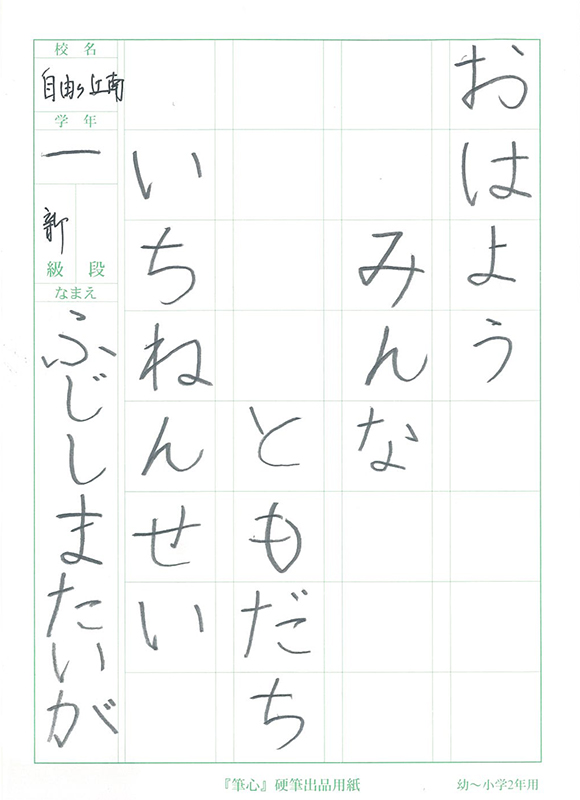 おはよう
みんな
ともだち
いちねんせい
校名
自由ヶ丘南
学年
一
新
級段
なまえ
ふじしまたいが
『筆心』硬筆出品用紙
幼〜小学2年用